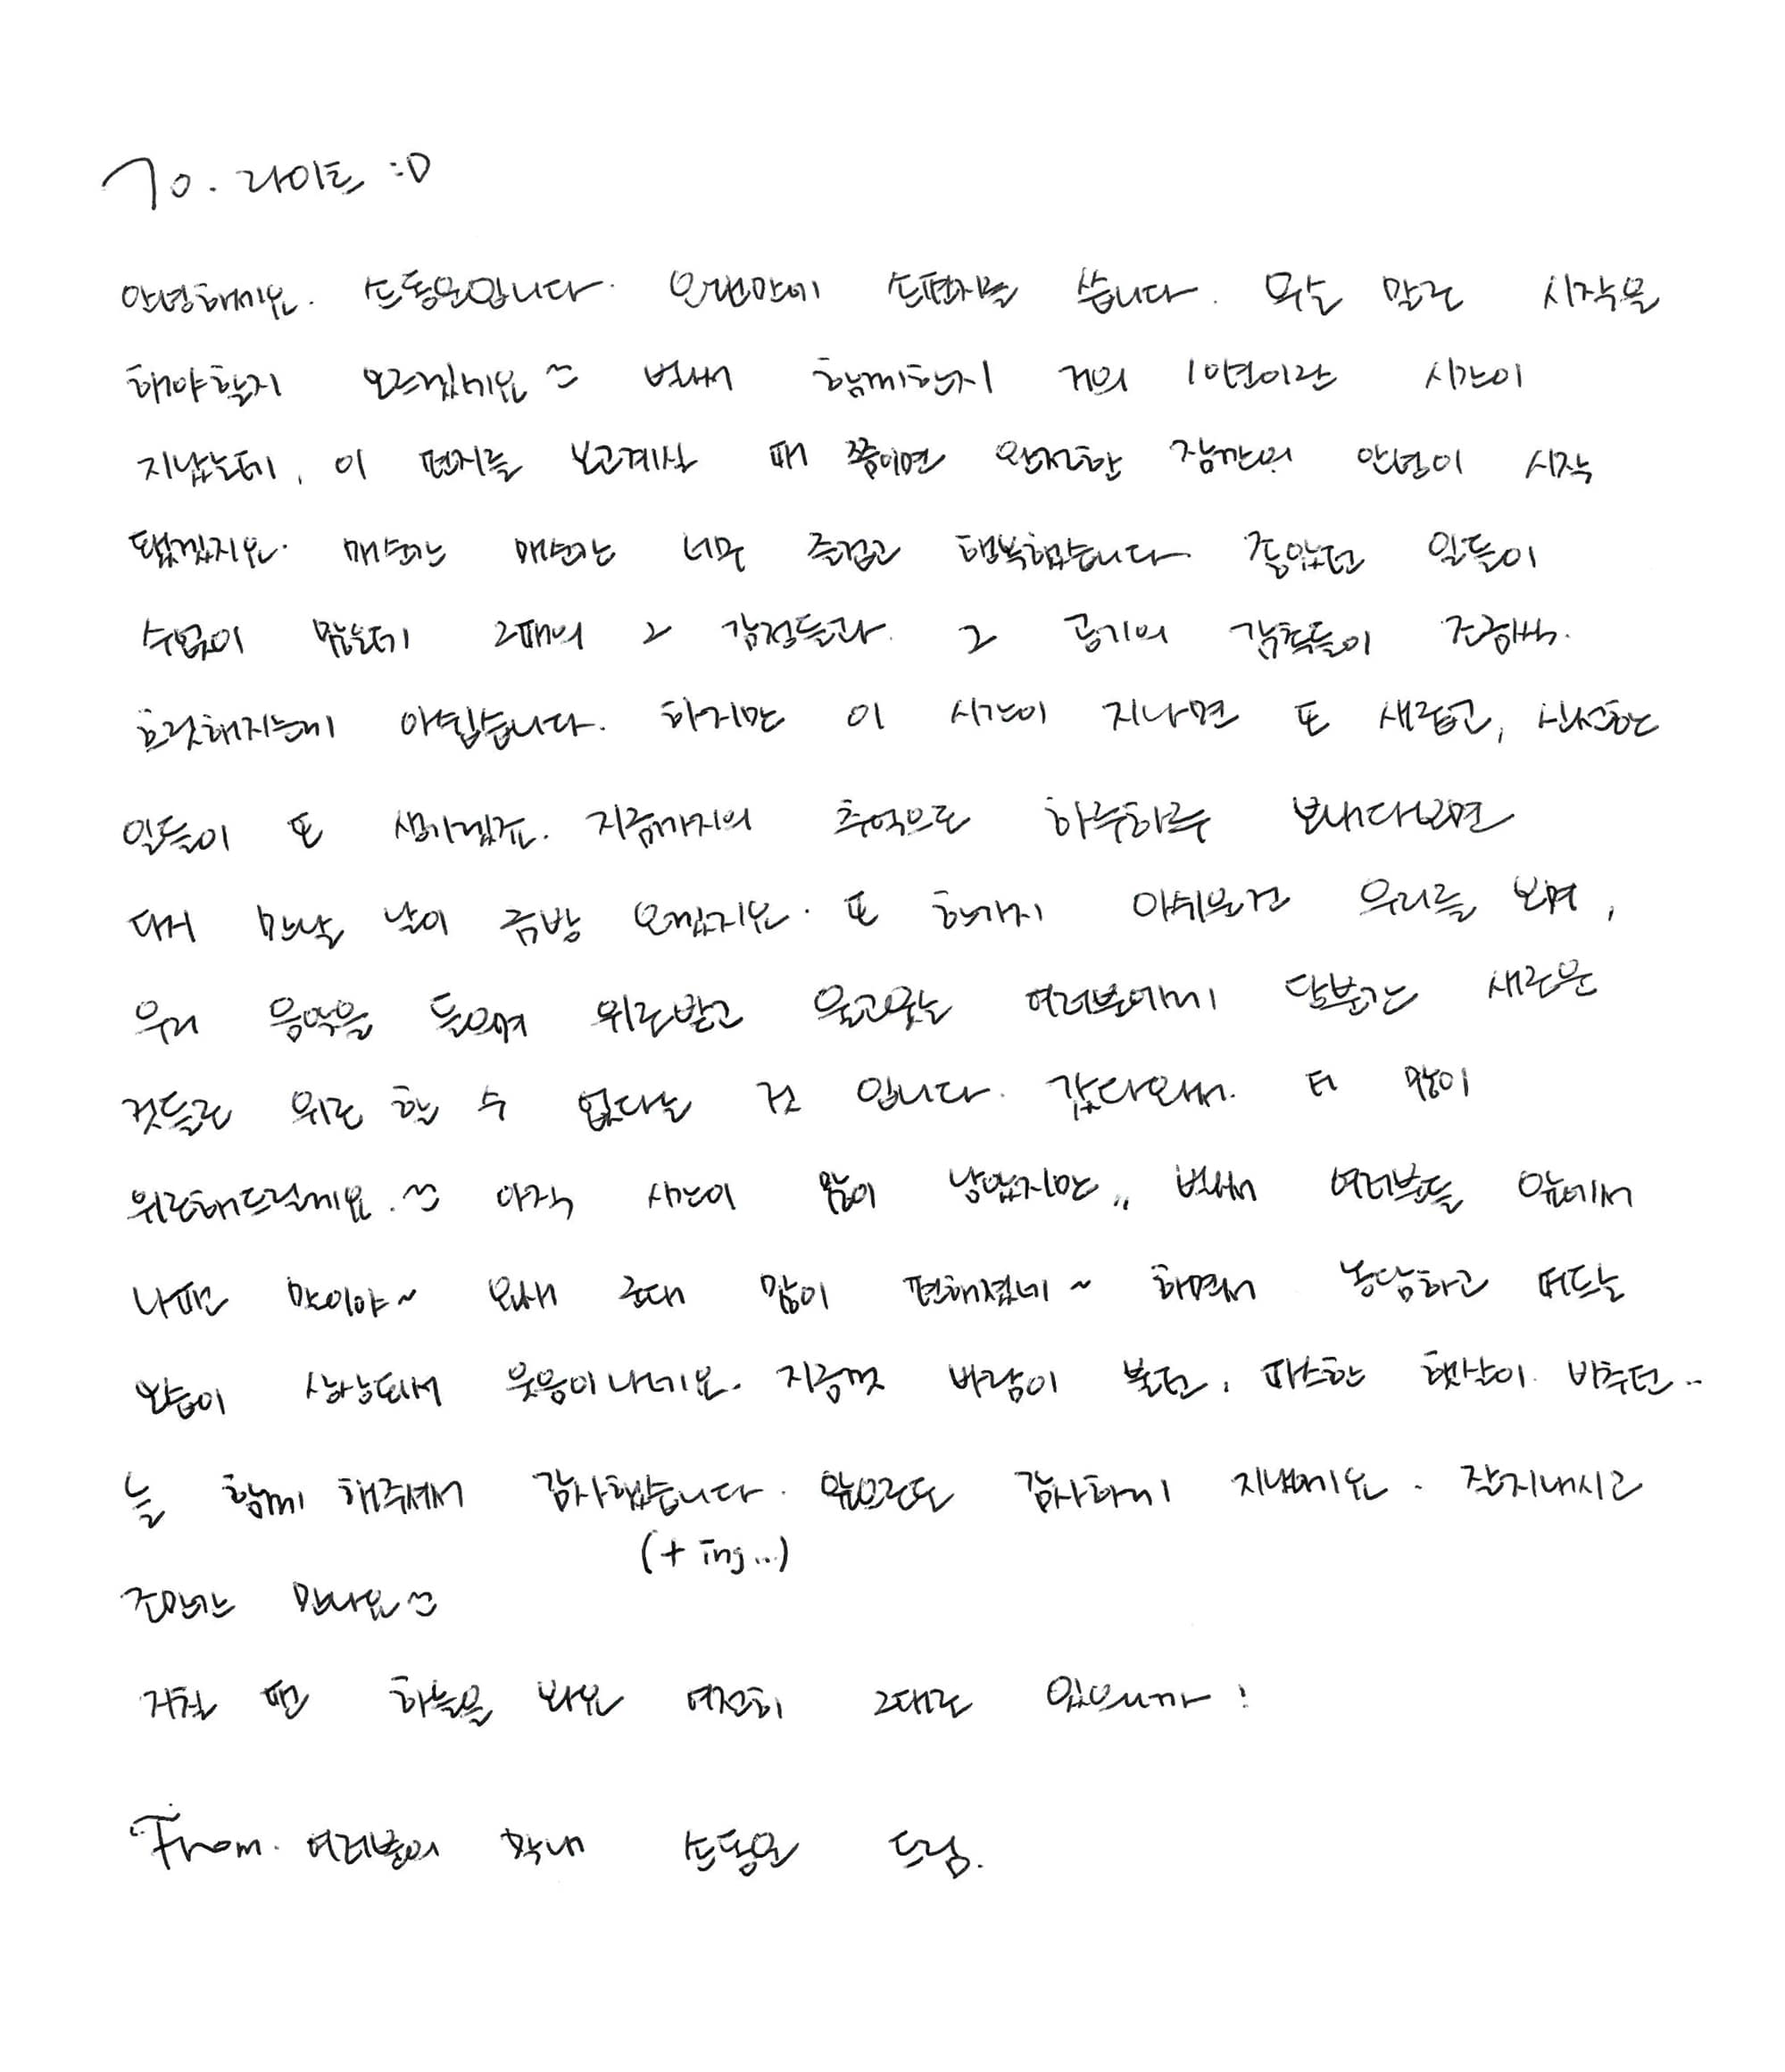 To. 라이트 :D
안녕하세요. 손동운입니다. 오랜만에 손편지를 씁니다. 무슨 말로 시작을
해야할지 모르겠네요 ^^ 벌써 함께한지 거의 10년이란 시간이
지났는데, 이 편지를 보고계실 때 쯤이면 완전한 잠깐의 안녕이 시작
됐겠지요. 매순간 매순간 너무 즐겁고 행복했습니다. 좋았던 일들이
수없이 많은데 그때의 그 감정들과. 그 공기의 감촉들이 조금씩.
흐릿해지는게 아쉽습니다. 하지만 이 시간이 지나면 또 새롭고, 신선한
일들이 또 생기겠죠. 지금까지의 추억으로 하루하루 보내다보면
다시 만날 날이 금방 오겠지요. 또 한가지 아쉬운건 우리를 보며,
우리 음악을 들으며 위로받고 울고웃는 여러분에게 당분간 새로운
것들로 위로 할 수 없다는 것 입니다. 갔다와서. 더 많이
위로해드릴게요. ^^ 아직 시간이 많이 남았지만,, 벌써 여러분들 앞에서
나때는 말이야~ 요새 군대 많이 편해졌네~ 하면서 농담하고 떠드는
모습이 상상되서 웃음이나네요. 지금껏 바람이 불던, 따스한 햇살이 비추던..
늘 함께 해주셔서 감사했습니다. 앞으로도 감사하게 지낼게요. 잘지내시고
(+ ing...)
조만간 만나요 ^^
지칠 땐 하늘을 봐요 여전히 그대로 있으니까!
From. 여러분의 막내 손동운 드림.